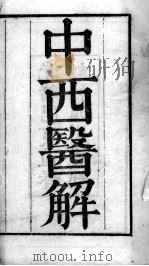 中西醫解
mtoou.info